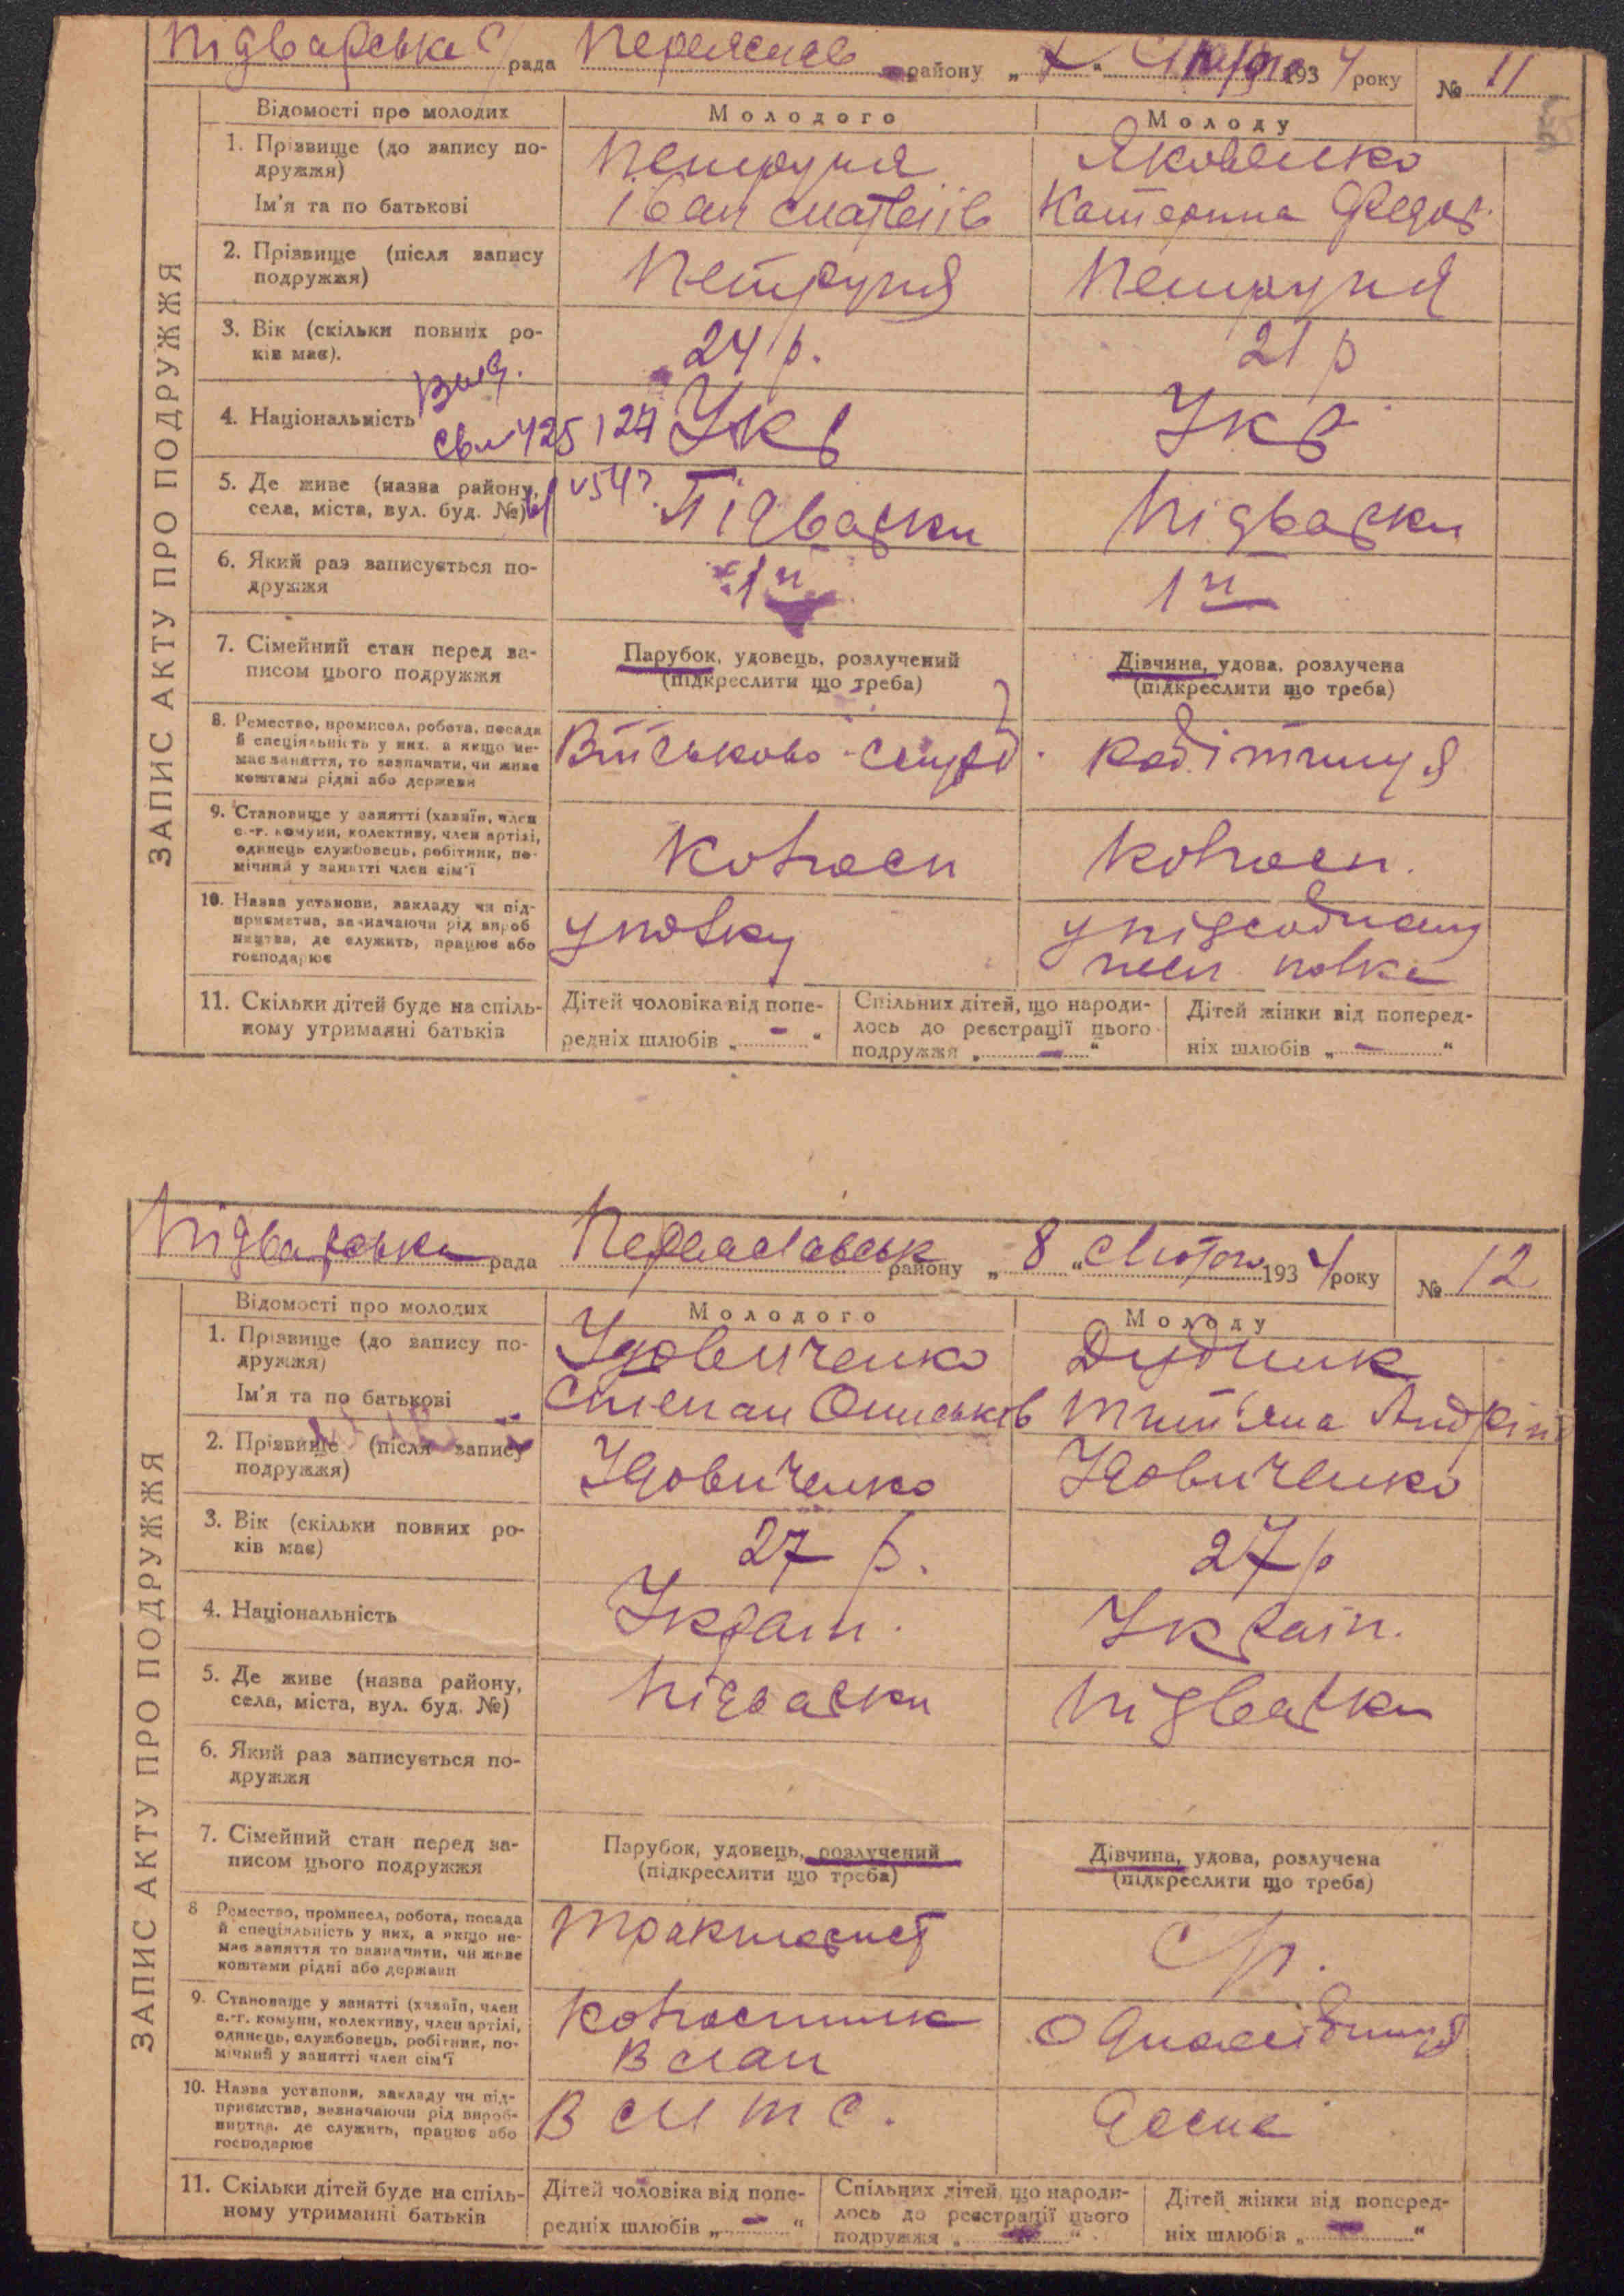 Підварська с/рада Переяслав району „ “ Лютого 1934 року № 11
ЗАПИС АКТУ ПРО ПОДРУЖЖЯ
Відомості про молодих Молодого Молоду
1. Прізвище (до запису по- Петруня Яковенко
дружжя)
Ім'я та по батькові Іван Матвіїв Катерина Федор.
2. Прізвище (після запису Петруня Петруня
подружжя)
3. Вік (скільки повних ро- 24 р. 21 р
ків має).
4. Національність Укр Укр
5. Де живе (назва району, Підварки Підварки
села, міста, вул. буд. №)
6. Який раз записується по- 1й 1й
дружжя
7. Сімейний стан перед за- Парубок, удовець, розлучений Дівчина, удова, розлучена
писом цього подружжя (підкреслити що треба) (підкреслити що треба)
8. Ремество, промисел, робота, посада Військово-служб.
й спеціяльність у них, а якщо не-
має заняття, то зазначати, чи живе
коштами рідні або держави
9. Становище у занятті (хазяїн, член
с.-г. комуни, колективу, член артілі, Колгосп Колгосп.
одинець службовець, робітник, по-
мічний у занятті член сім'ї
10. Назва установи, закладу чи під- у полку
приємства, зазначаючи рід вироб
ництва, де служить, працює або полка
господарює
11. Скільки дітей буде на спіль- Дітей чоловіка від попе- Спільних дітей, що народи- Дітей жінки від поперед-
ному утриманні батьків редніх шлюбів „ - “ лось до реєстрації цього ніх шлюбів „ - “
подружжя „ - “
Підварська рада Переяславськ району „ 8 “ Лютого 1934 року № 12
ЗАПИС АКТУ ПРО ПОДРУЖЖЯ
Відомості про молодих Молодого Молоду
1. Прізвище (до запису по- Удовиченко Дудник
дружжя)
Ім'я та по батькові Степан Ониськів Тит'яна Андрії
2. Прізвище (після запису Удовиченко Удовиченко
подружжя)
3. Вік (скільки повних ро- 27 р. 27 р
ків має)
4. Національність Україн. Україн.
5. Де живе (назва району, Підварки Підварки
села, міста, вул. буд. №)
6. Який раз записується по-
дружжя
7. Сімейний стан перед за- Парубок, удовець, розлучений Дівчина, удова, розлучена
писом цього подружжя (підкреслити що треба) (підкреслити що треба)
8 Ремество, промисел, робота, посада Тракторист
й спеціяльність у них, а якщо не-
має заняття то зазначити, чи живе
коштами рідні або держави
9. Становище у занятті (хазяїн, член Колгоспник
с.-г. комуни, колективу, член артілі, Одноосібниця
одинець, службовець, робітник, по-
мічний у занятті член сім'ї
10. Назва установи, закладу чи під- В М Т С.
приємства, зазначаючи рід вироб-
ництва, де служить, працює або
господарює
11. Скільки дітей буде на спіль- Дітей чоловіка від попе- Спільних дітей, що народи- Дітей жінки від поперед-
ному утриманні батьків редніх шлюбів „ - “ лось до реєстрації цього ніх шлюбів „ - “
подружжя „ - “